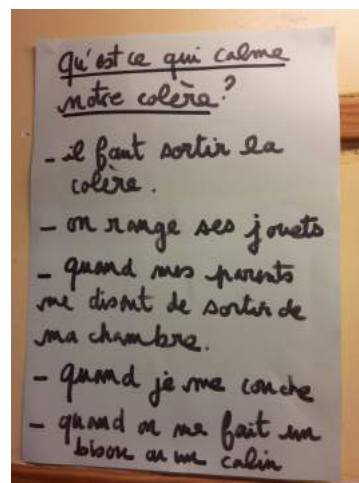 Qu'est ce qui calme
notre colère?
- il faut sortir la
colère.
- on range ses jouets
- quand mes parents
me disent de sortir de
ma chambre.
- quand je me couche
- quand on me fait un
bisou ou un calin